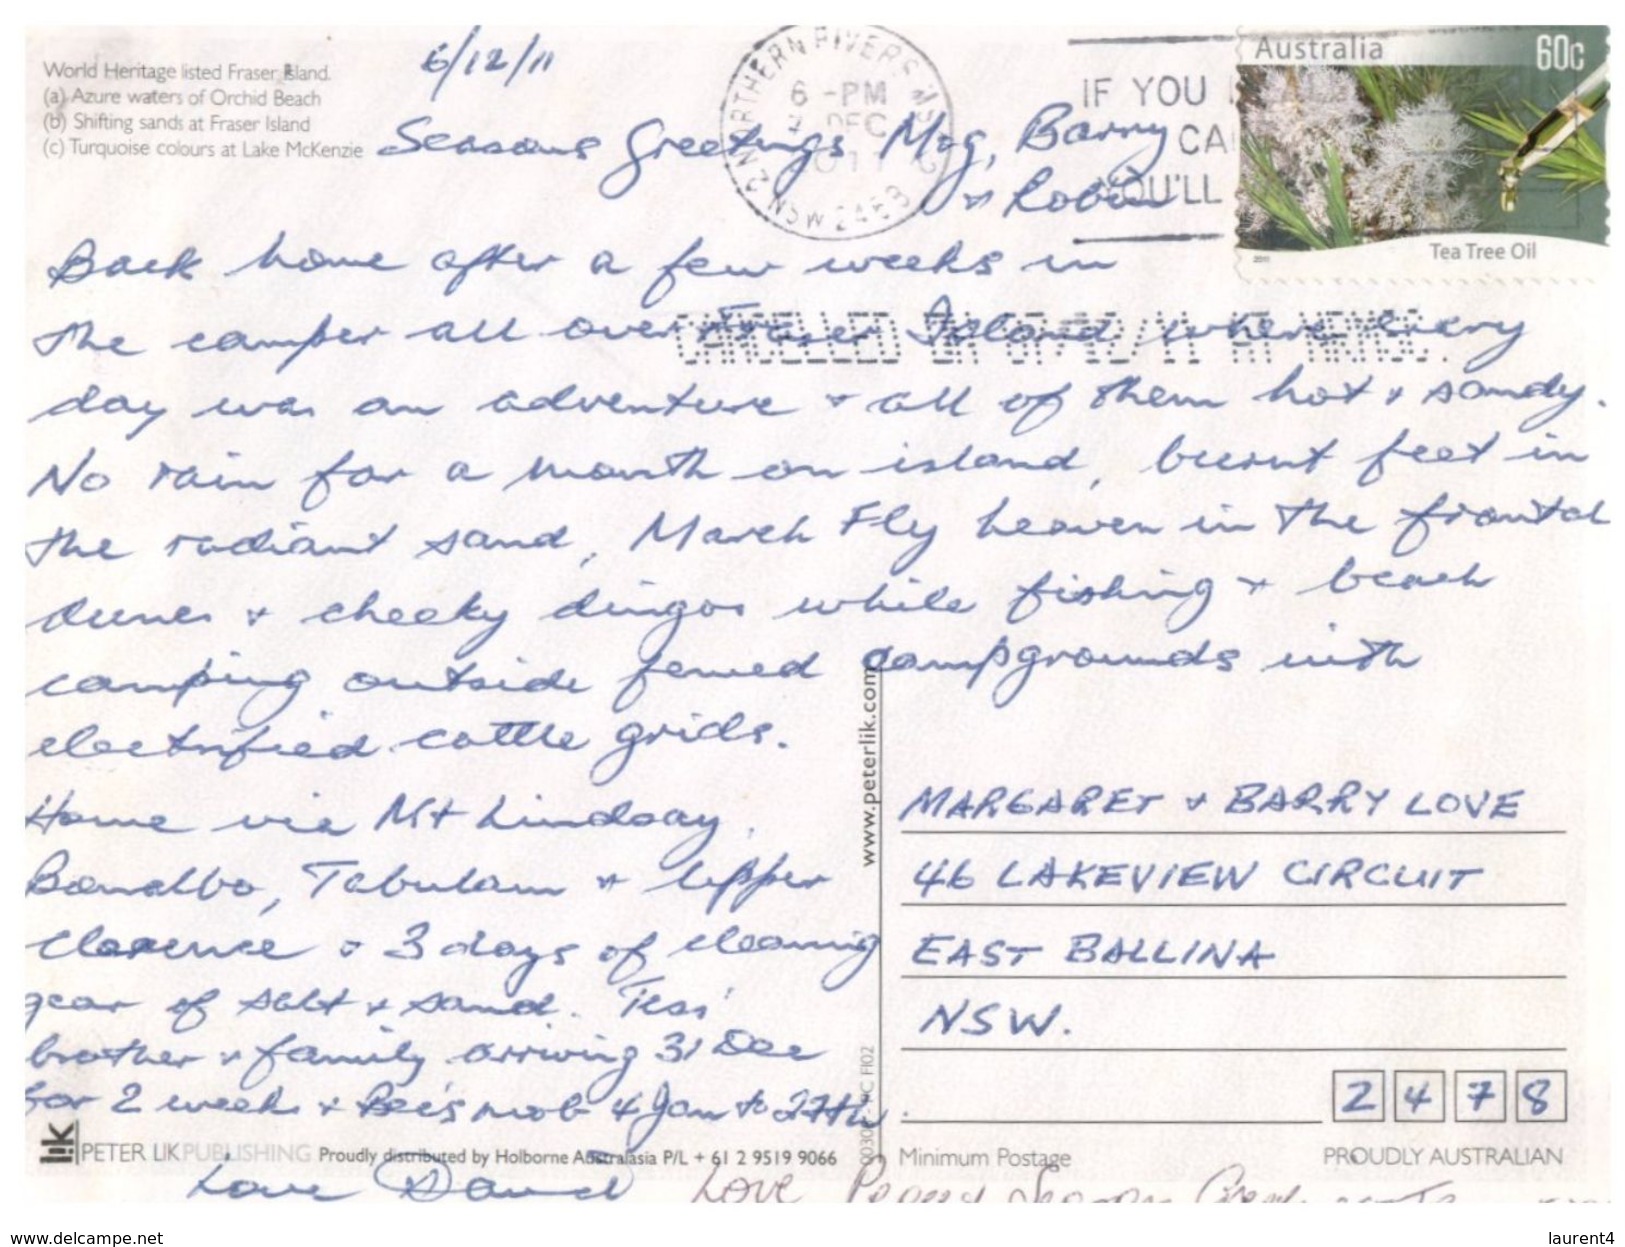 World Heritage listed Fraser Island.
(a) Azure waters of Orchid Beach
(b) Shifting sands at Fraser Island
(c) Turquoise colours at Lake McKenzie
6/12/11
NORTHERN RIVERS MSC
6 - PM
DEC
2011
NSW 2468
IF YOU
CA
YOU'LL
Australia 60c
Tea Tree Oil
2011
Seasons Greetings Mag, Barry
+ Robin
Back home after a few weeks in
the camper all over Fraser Island where every
CANCELLED
day was an adventure + all of them hot + sandy.
No rain for a month on island, burnt feet in
the radiant sand, March Fly heaven in the frontal
dunes + cheeky dingos while fishing + beach
camping outside fenced campgrounds with
electrified cattle grids.
Home via Mt Lindsay,
Bonalbo, Tabulam + Upper
Clarence + 3 days of cleaning
gear of salt + sand. Tess'
brother + family arriving 31 Dec
for 2 weeks + Bec's mob 4 Jan to 27th
Love David
Love
www.peterlik.com
MARGARET + BARRY LOVE
46 LAKEVIEW CIRCUIT
EAST BALLINA
NSW.
2478
lik PETER LIK PUBLISHING Proudly distributed by Holborne Australasia P/L + 61 2 9519 9066
FI02
Minimum Postage
PROUDLY AUSTRALIAN
www.delcampe.net
laurent4